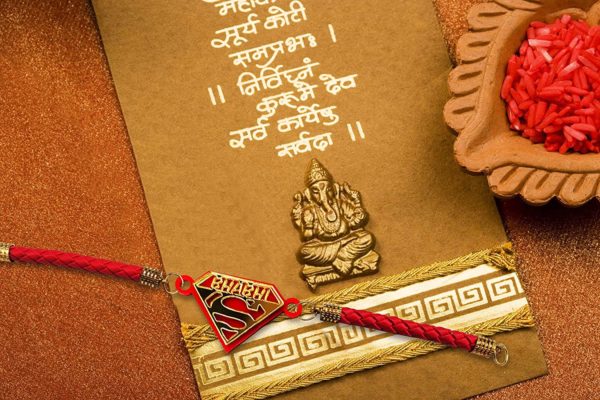 सूर्य कोटी
समप्रभः ।
॥ निर्विघ्नं
कुरूमे देव
सर्व कार्येषु
सर्वदा ॥
BHABHI
S